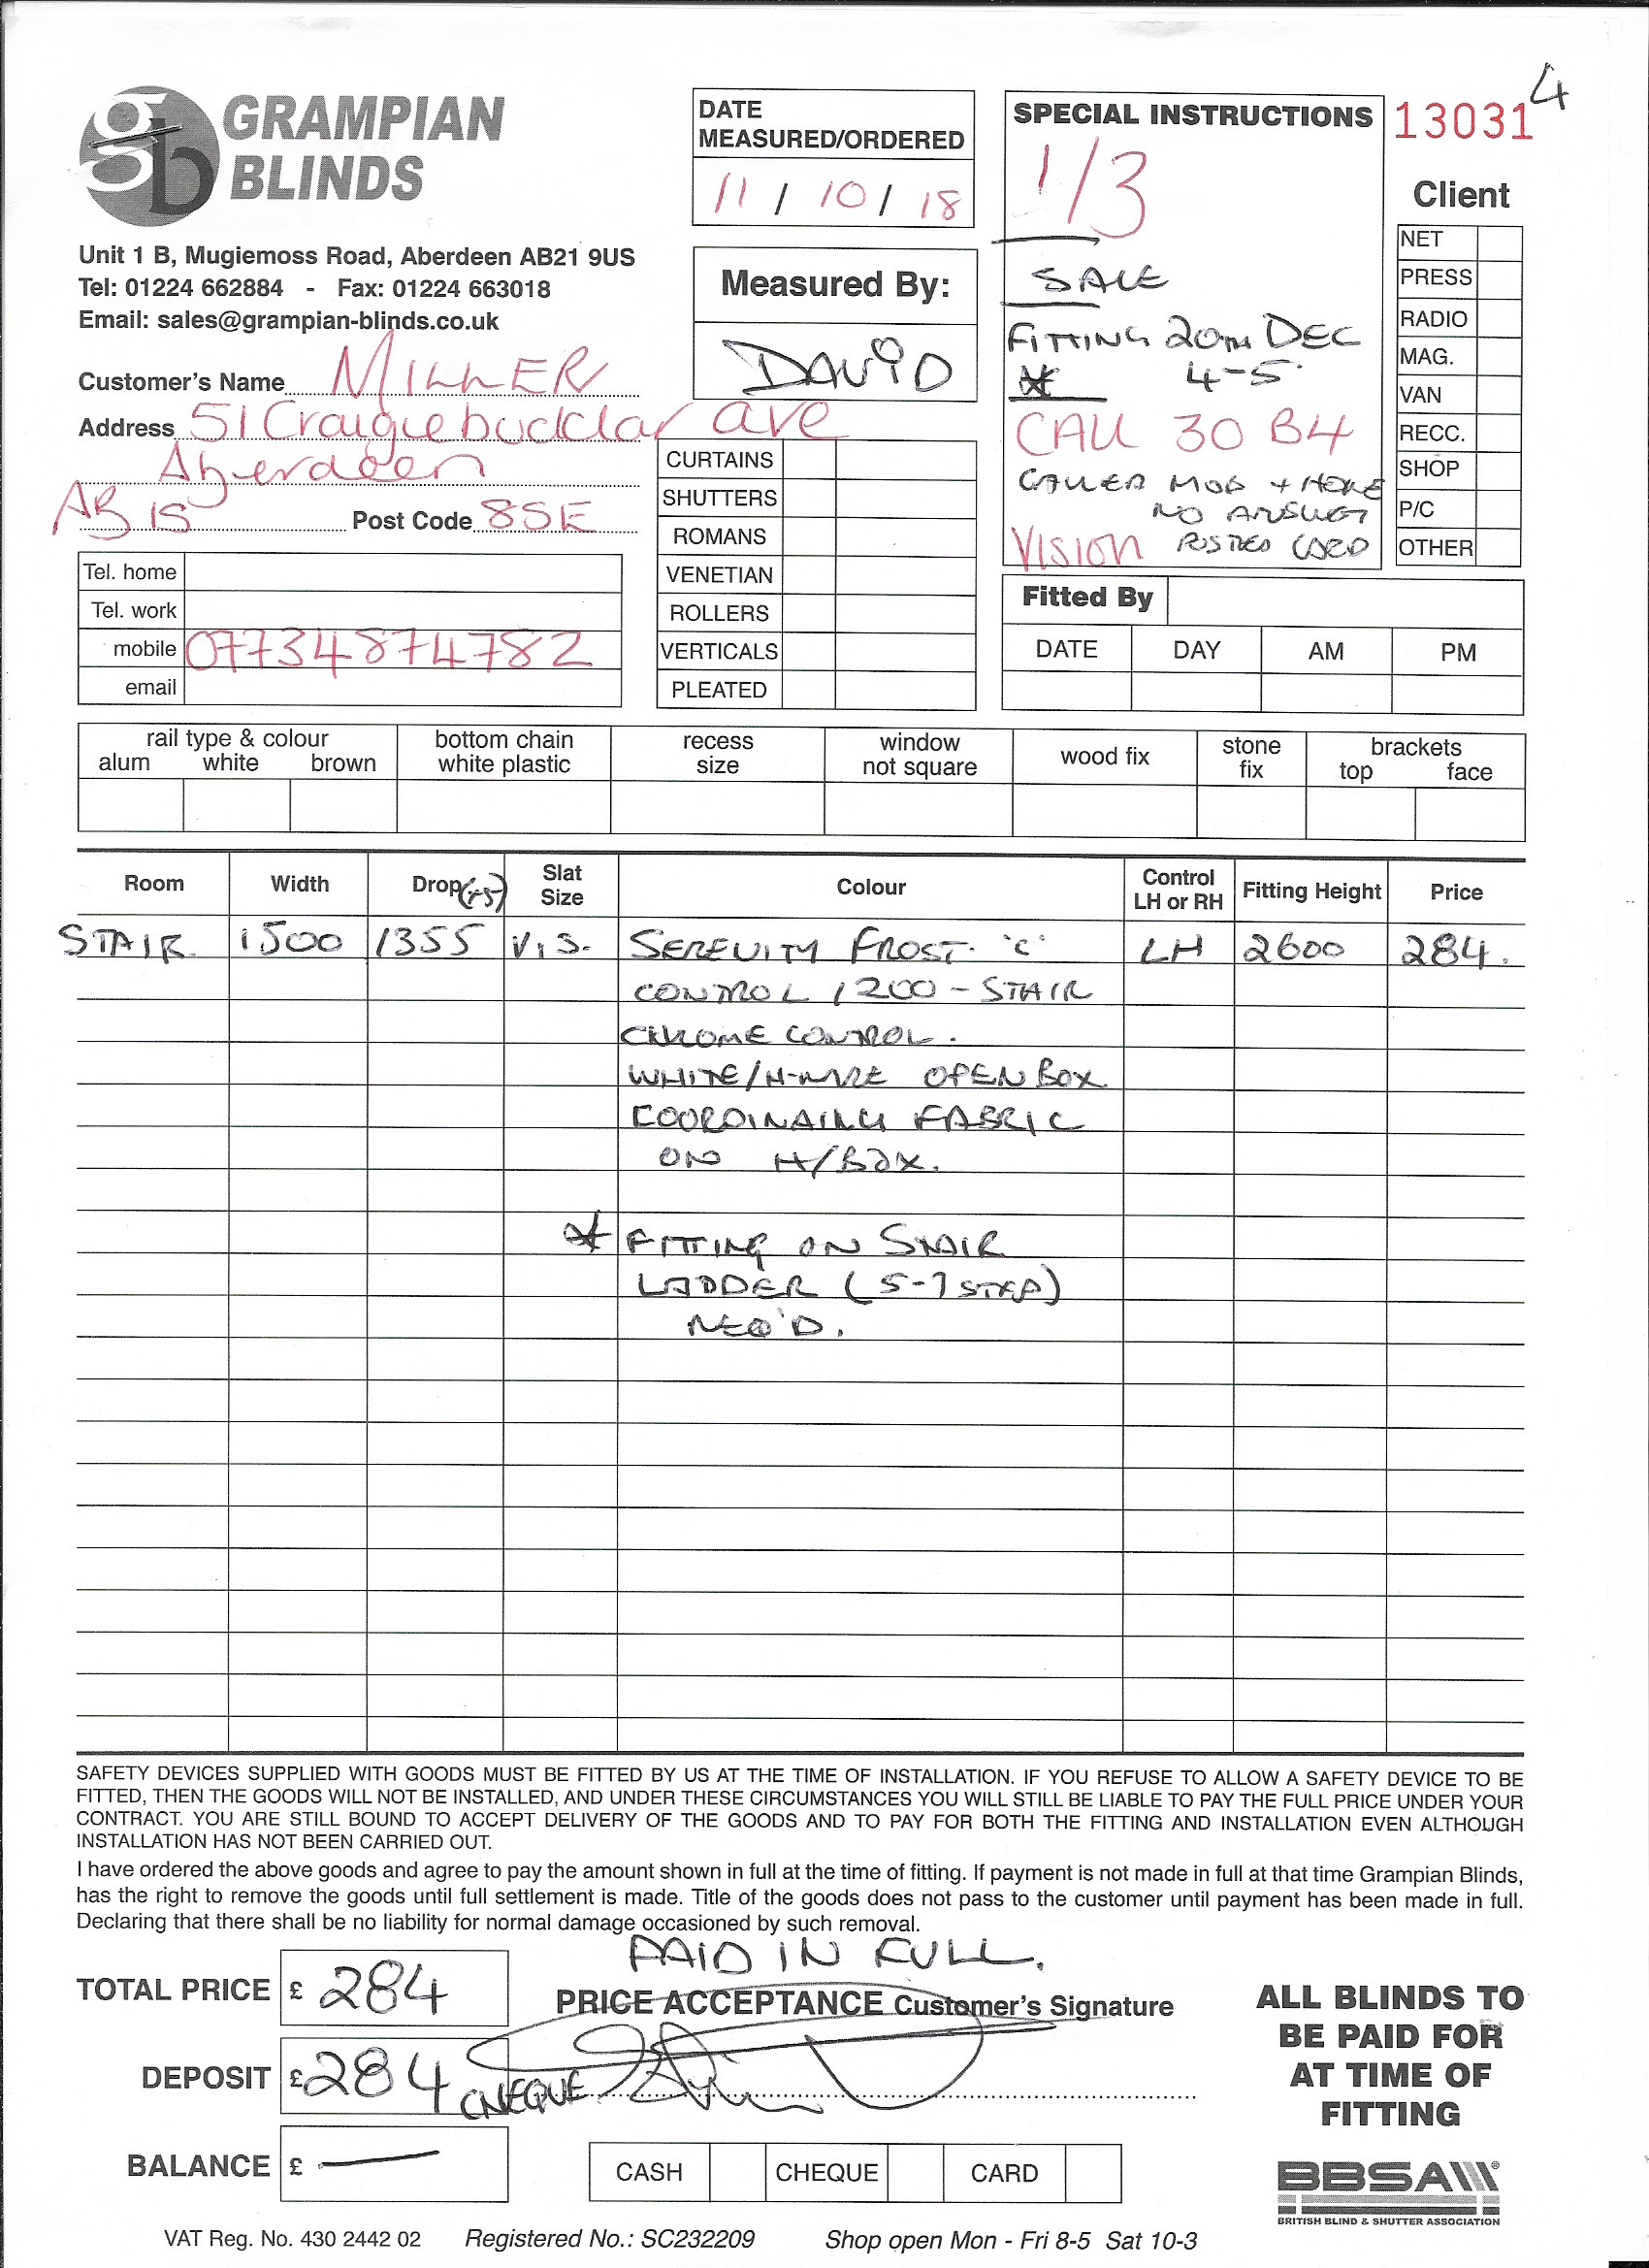 GRAMPIAN
BLINDS
Unit 1 B, Mugiemoss Road, Aberdeen AB21 9US
Tel: 01224 662884 - Fax: 01224 663018
Email: sales@grampian-blinds.co.uk
Customer's Name MILLER
Address 51 Craigiebucklar ave
Aberdeen
AB 15 Post Code 8SE
Tel. home
Tel. work
mobile 07734874782
email
DATE
MEASURED/ORDERED
11 / 10 / 18
Measured By:
DAVID
CURTAINS
SHUTTERS
ROMANS
VENETIAN
ROLLERS
VERTICALS
PLEATED
SPECIAL INSTRUCTIONS
1/3
SALE
FITTING 20TH DEC
* 4-5
CALL 30 B4
CALLED MOB + HOME
NO ANSWER
VISION POSTED CARD
13031 4
Client
NET
PRESS
RADIO
MAG.
VAN
RECC.
SHOP
P/C
OTHER
Fitted By
DATE DAY AM PM
rail type & colour
alum white brown
bottom chain
white plastic
recess
size
window
not square
wood fix
stone
fix
brackets
top face
Room Width Drop (+5) Slat Size Colour Control LH or RH Fitting Height Price
STAIR 1500 1355 VIS. SERENITY FROST. 'C' LH 2600 284.
CONTROL 1200 - STAIR
CHROME CONTROL.
WHITE/ OPEN BOX
FABRIC
ON H/BOX.
* FITTING ON STAIR
LADDER (5-7 STEP)
REQ'D.
SAFETY DEVICES SUPPLIED WITH GOODS MUST BE FITTED BY US AT THE TIME OF INSTALLATION. IF YOU REFUSE TO ALLOW A SAFETY DEVICE TO BE
FITTED, THEN THE GOODS WILL NOT BE INSTALLED, AND UNDER THESE CIRCUMSTANCES YOU WILL STILL BE LIABLE TO PAY THE FULL PRICE UNDER YOUR
CONTRACT. YOU ARE STILL BOUND TO ACCEPT DELIVERY OF THE GOODS AND TO PAY FOR BOTH THE FITTING AND INSTALLATION EVEN ALTHOUGH
INSTALLATION HAS NOT BEEN CARRIED OUT.
I have ordered the above goods and agree to pay the amount shown in full at the time of fitting. If payment is not made in full at that time Grampian Blinds,
has the right to remove the goods until full settlement is made. Title of the goods does not pass to the customer until payment has been made in full.
Declaring that there shall be no liability for normal damage occasioned by such removal.
PAID IN FULL.
TOTAL PRICE £ 284
PRICE ACCEPTANCE Customer's Signature
DEPOSIT £ 284 CHEQUE
BALANCE £ —
CASH CHEQUE CARD
ALL BLINDS TO
BE PAID FOR
AT TIME OF
FITTING
BBSA
BRITISH BLIND & SHUTTER ASSOCIATION
VAT Reg. No. 430 2442 02 Registered No.: SC232209 Shop open Mon - Fri 8-5 Sat 10-3